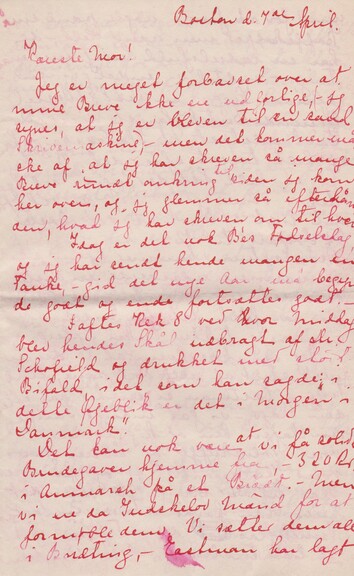 Boston d. 7de April.
Kæreste Mor!
Jeg er meget forbavset over at
mine Breve ikke ere udførlige, – jeg
synes, at jeg er bleven til en sand
Skrivemaskine – men det kommer nok
cke af, at jeg har skreven så mange
Breve rundt omkring til siden jeg kom
her over, og jeg glemmer så efterhån
den, hvad jeg har skreven om til hver
Idag er det nok B's Fødselsdag
og jeg har sendt hende mangen en
Tanke, – gid det nye Aar må begyn
de godt og ende fortsættes godt. –
Iaftes Kl. 8 ved vor middag
blev hendes Skål udbragt af
Schofield og drukket med stort
Bifald idet som han sagde: "i
dette Øjeblik er det i Morgen i
Danmark".
Det kan nok være at vi få solide
Brudegaver hjemme fra, – 320 Kr
i Anmarsh på et Brædt. – Men
vi ere da Indskelov Mænd for at
formøble dem. Vi sætter dem alle
i Bryting, – Eastman har lagt